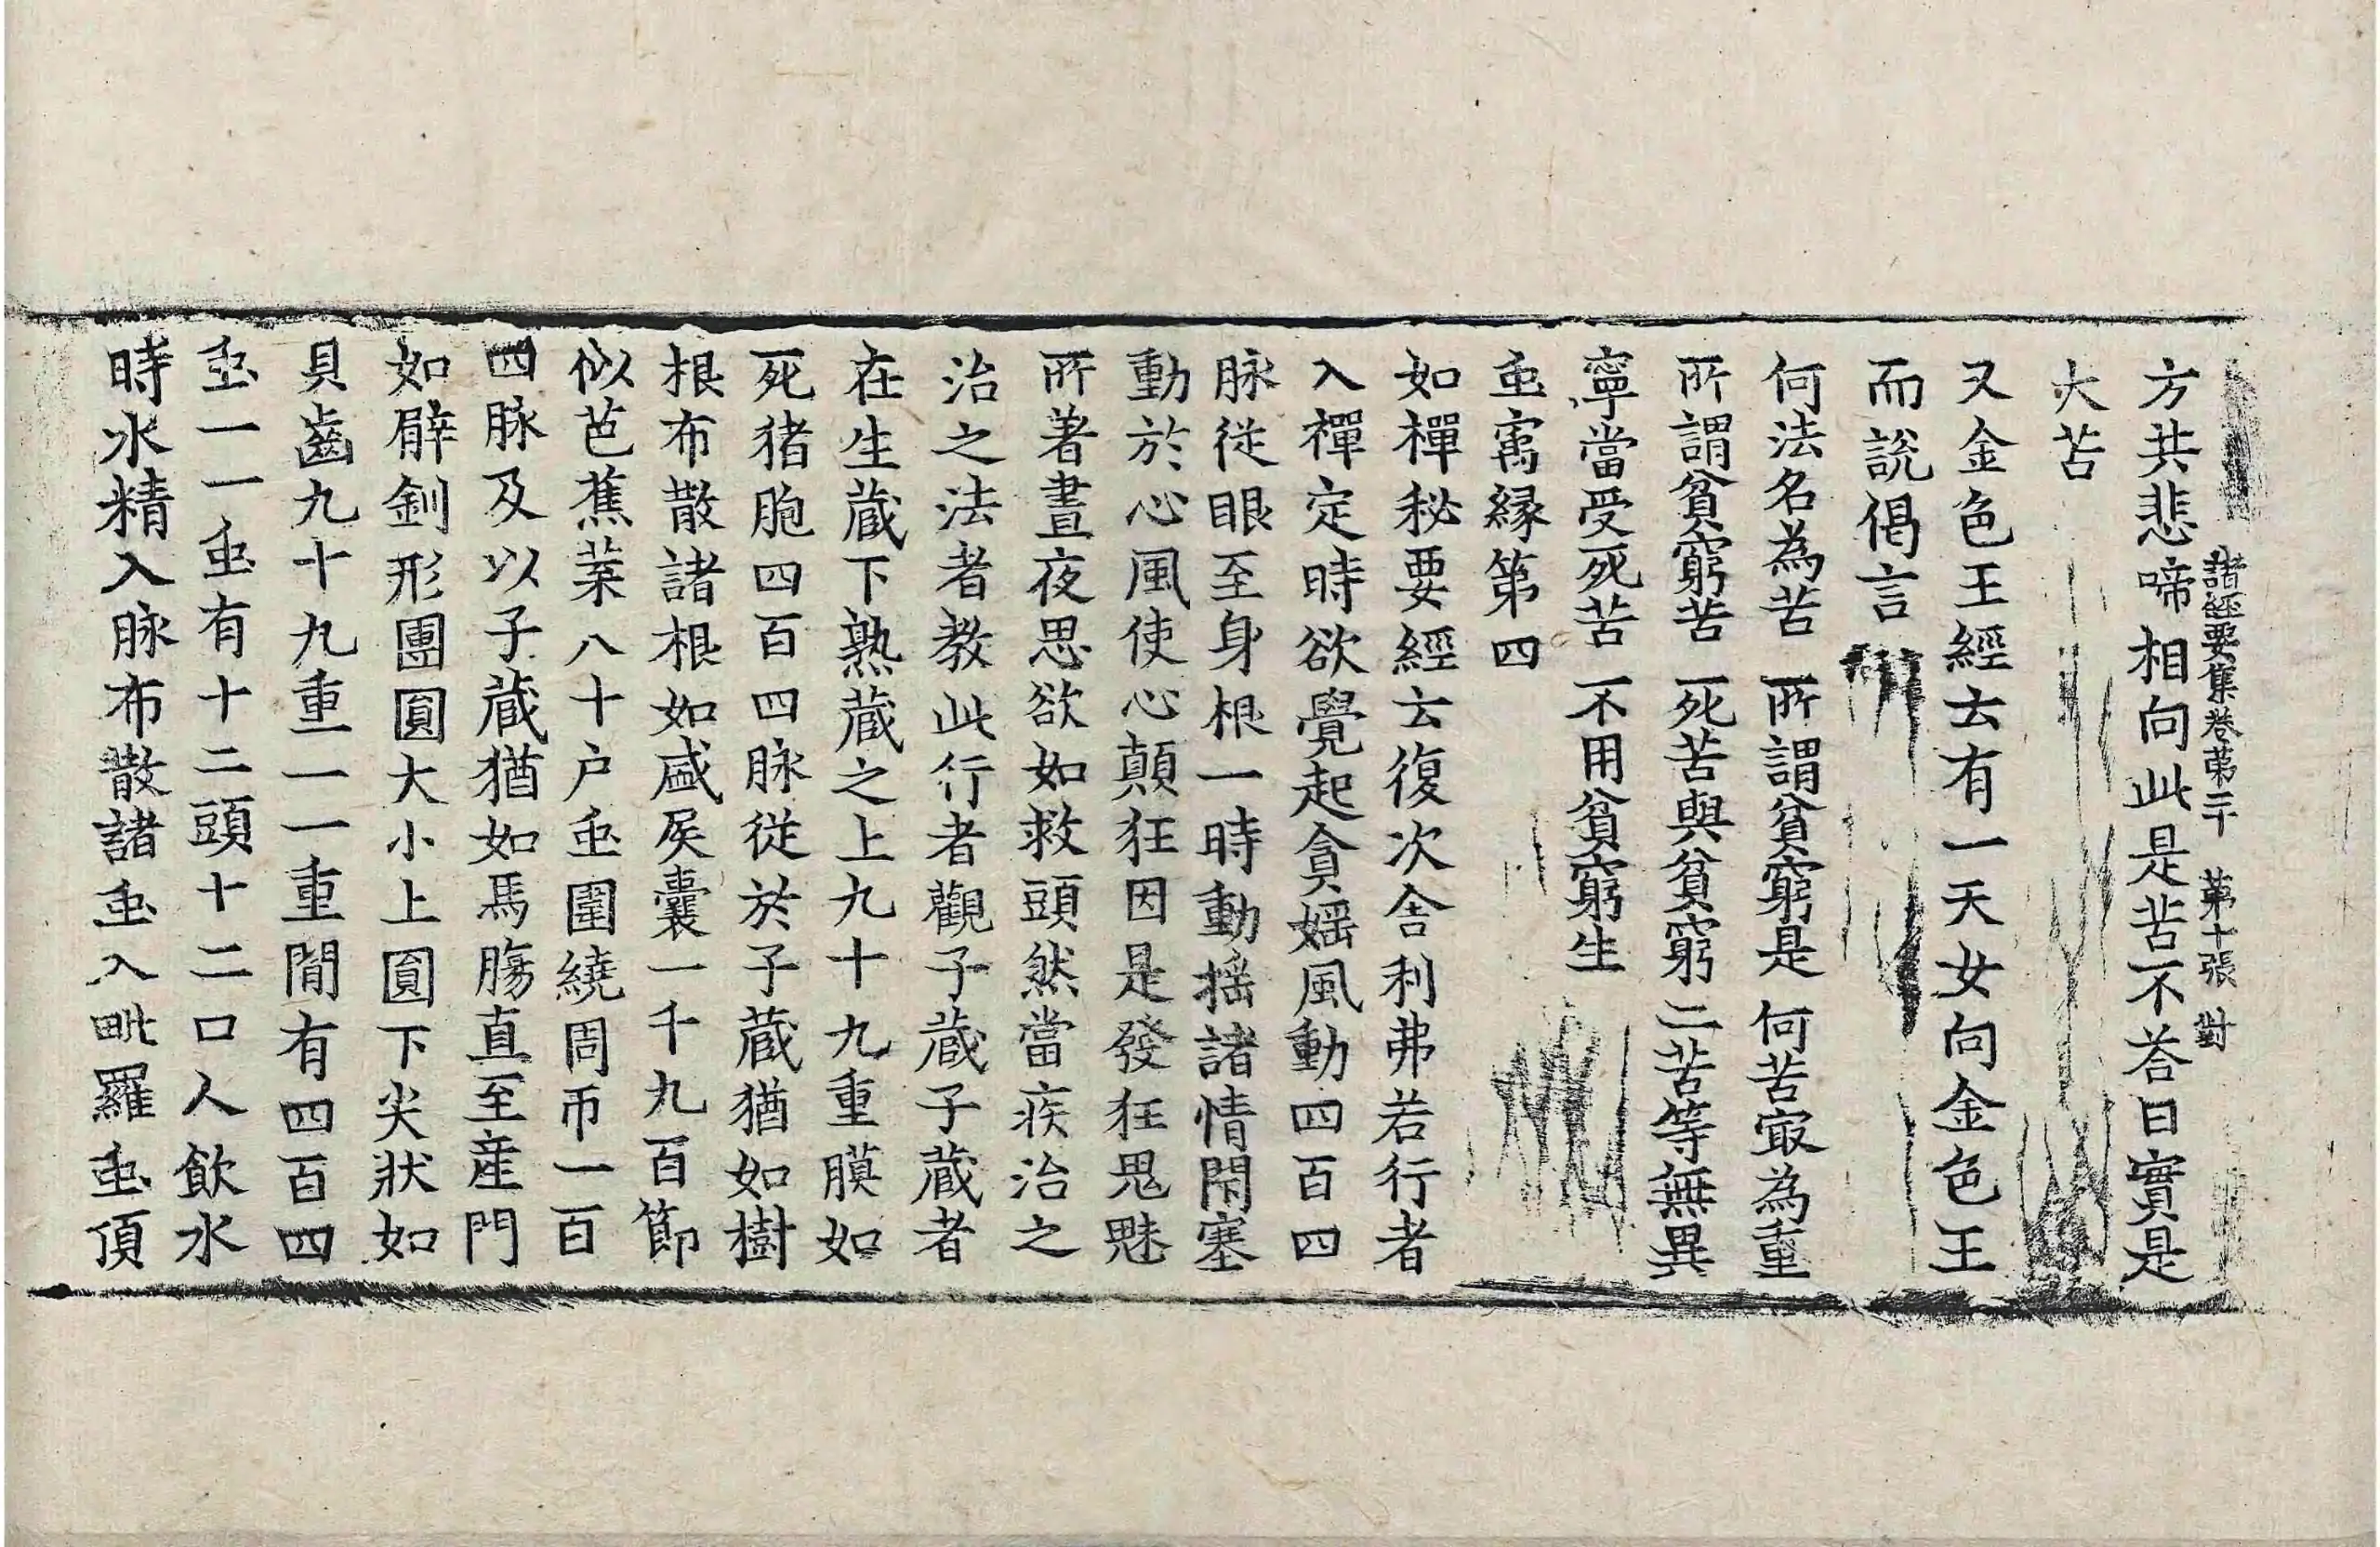 諸經要集卷第二十　第十張　對
方共悲啼相向此是苦不荅曰實是
大苦
又金色王經云有一天女向金色王
而說偈言
何法名為苦　所謂貧窮是　何苦㝡為重
所謂貧窮苦　死苦與貧窮　二苦等無異
寧當受死苦　不用貧窮生
䖝寓緣第四
如禪秘要經云復次舍利弗若行者
入禪定時欲覺起貪婬風動四百四
脉從眼至身根一時動搖諸情閉塞
動於心風使心顛狂因是發狂鬼魅
所著晝夜思欲如救頭然當疾治之
治之法者教此行者觀子藏子藏者
在生藏下熟藏之上九十九重膜如
死猪胞四百四脉從於子藏猶如樹
根布散諸根如盛屎囊一千九百節
似芭蕉葉八十户䖝圍繞周帀一百
四脉及以子藏猶如馬膓直至産門
如臂釧形團圓大小上圓下尖狀如
貝齒九十九重一一重閒有四百四
䖝一一䖝有十二頭十二口人飲水
時水精入脉布散諸䖝入毗羅䖝頂